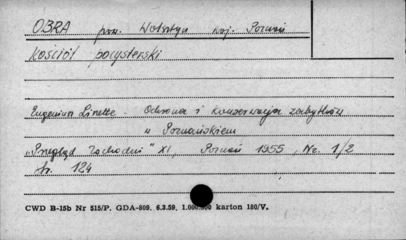 OBRA pow. Wolsztyn woj. Poznań
Kościół pocysterski
Eugeniusz Linette. Ochrona i konserwacja zabytków
w Poznańskiem
„Przegląd Zachodni" XI, Poznań 1955, Nr. 1/2
str. 124
CWD B-15b Nr 515/P. GDA-809. 6.3.59. 1.000.000 karton 180/V.